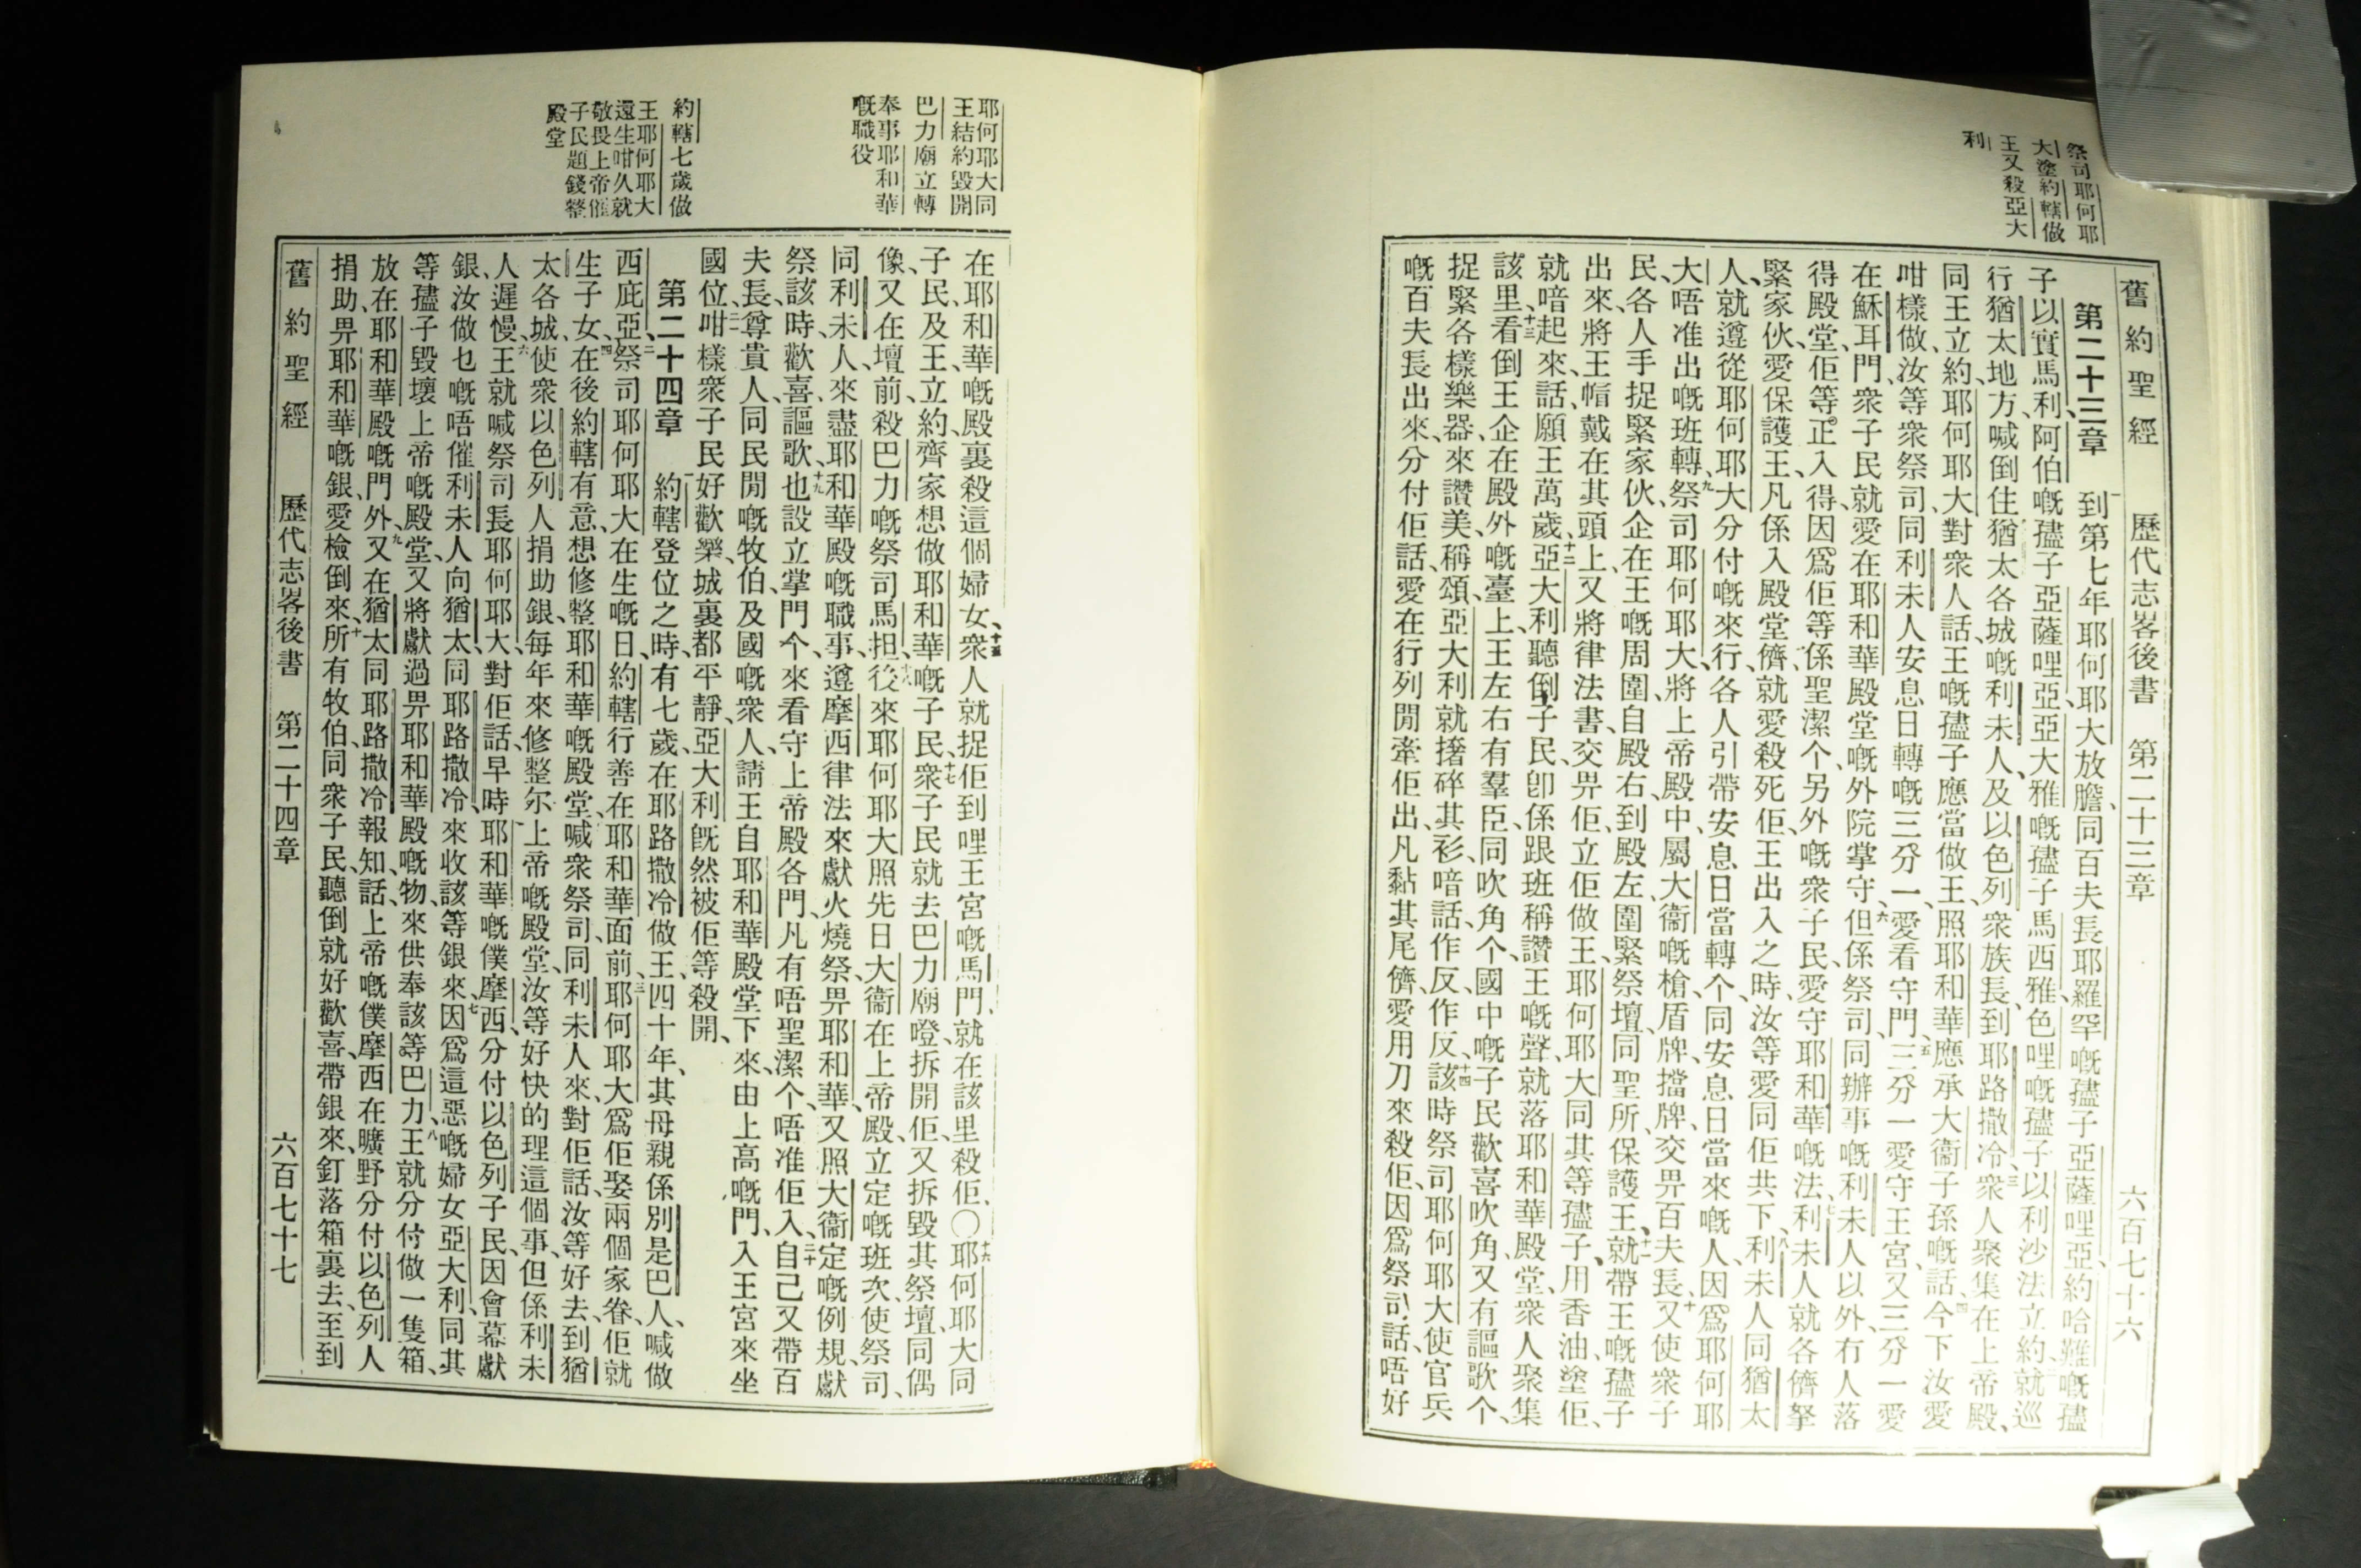 祭司耶何耶
大塗約轄做
王又殺亞大
利
舊約聖經 歷代志畧後書 第二十三章 六百七十六
第二十三章 到第七年耶何耶大放膽、同百夫長耶羅罕嘅孻子亞薩哩亞、約哈難嘅孻
子以實馬利、阿伯嘅孻子亞薩哩亞、亞大雅嘅孻子馬西雅、色哩嘅孻子以利沙法立約、就巡
行猶太地方、喊倒住猶太各城嘅利未人、及以色列衆族長、到耶路撒冷、三衆人聚集在上帝殿、
同王立約、耶何耶大對衆人話、王嘅孻子應當做王、照耶和華應承大衞子孫嘅話、四今下汝愛
咁樣做、汝等衆祭司、同利未人安息日轉嘅三分一、愛看守門、五三分一愛守王宮、又三分一愛
在穌耳門、衆子民就愛在耶和華殿堂嘅外院掌守、六但係祭司、同辦事嘅利未人以外、冇人落
得殿堂、佢等正入得、因爲佢等係聖潔个、另外嘅衆子民、愛守耶和華嘅法、七利未人就各儕拏
緊家伙、愛保護王、凡係入殿堂儕、就愛殺死佢、王出入之時、汝等愛同佢共下、八利未人同猶太
人、就遵從耶何耶大分付嘅來行、各人引帶安息日當轉个、同安息日當來嘅人、因爲耶何耶
大唔准出嘅班轉、九祭司耶何耶大、將上帝殿中、屬大衞嘅槍、盾牌、擋牌、交畀百夫長、十又使衆子
民、各人手捉緊家伙、企在王嘅周圍、自殿右到殿左、圍緊祭壇、同聖所、保護王、十一就帶王嘅孻子
出來、將王帽戴在其頭上、又將律法書、交畀佢、立佢做王、耶何耶大同其等孻子、用香油塗佢、
就喑起來話、願王萬歲、十二亞大利聽倒子民、卽係跟班稱讚王嘅聲、就落耶和華殿堂、衆人聚集
該里、十三看倒王企在殿外嘅臺上、王左右有羣臣、同吹角个、國中嘅子民歡喜吹角、又有謳歌个、
捉緊各樣樂器、來讚美、稱頌、亞大利就撦碎其衫、喑話、作反、作反、十四該時祭司耶何耶大使官兵
嘅百夫長出來、分付佢話、愛在行列閒牽佢出、凡黏其尾儕、愛用刀來殺佢、因爲祭司話、唔好
耶何耶大同
王結約毀開
巴力廟立轉
奉事耶和華
嘅職役
約轄七歲做
王耶何耶大
還生咁久就
敬畏上帝催
子民題錢整
殿堂
在耶和華嘅殿裏殺這個婦女、十五衆人就捉佢到哩王宮嘅馬門、就在該里殺佢、〇十六耶何耶大同
子民、及王立約、齊家想做耶和華嘅子民、十七衆子民就去巴力廟噔拆開佢、又拆毀其祭壇、同偶
像、又在壇前殺巴力嘅祭司馬担、十八後來耶何耶大照先日大衞在上帝殿、立定嘅班次、使祭司、
同利未人、來盡耶和華殿嘅職事、遵摩西律法來獻火燒祭、畀耶和華、又照大衞定嘅例規、獻
祭該時、歡喜、謳歌、十九也設立掌門个、來看守上帝殿各門、凡有唔聖潔个、唔准佢入、二十自己又帶百
夫長、尊貴人、同民閒嘅牧伯、及國嘅衆人、請王自耶和華殿堂下來、由上高嘅門、入王宮來坐
國位、廿一咁樣衆子民好歡樂、城裏都平靜、亞大利旣然被佢等殺開、
第二十四章 一約轄登位之時、有七歲、在耶路撒冷做王、四十年、其母親係別是巴人、喊做
西庇亞、二祭司耶何耶大在生嘅日、約轄行善在耶和華面前、三耶何耶大爲佢娶兩個家眷、佢就
生子女、四在後約轄有意想修整耶和華嘅殿堂、五喊衆祭司、同利未人來、對佢話、汝等好去、到猶
太各城、使衆以色列人捐助銀、每年來修整尔上帝嘅殿堂、汝等好快的理這個事、但係利未
人遲慢、六王就喊祭司長耶何耶大、對佢話、早時耶和華嘅僕摩西、分付以色列子民、因會幕獻
銀、汝做乜嘅唔催利未人、向猶太、同耶路撒冷、來收該等銀來、七因爲這惡嘅婦女亞大利、同其
等孻子毀壞上帝嘅殿堂、又將獻過畀耶和華殿嘅物、來供奉該等巴力、八王就分付做一隻箱、
放在耶和華殿嘅門外、九又在猶太同耶路撒冷報知、話、上帝嘅僕摩西在曠野分付以色列人
捐助、畀耶和華嘅銀、愛檢倒來、十所有牧伯、同衆子民聽倒就好歡喜、帶銀來、釘落箱裏去、至到
舊約聖經 歷代志畧後書 第二十四章 六百七十七